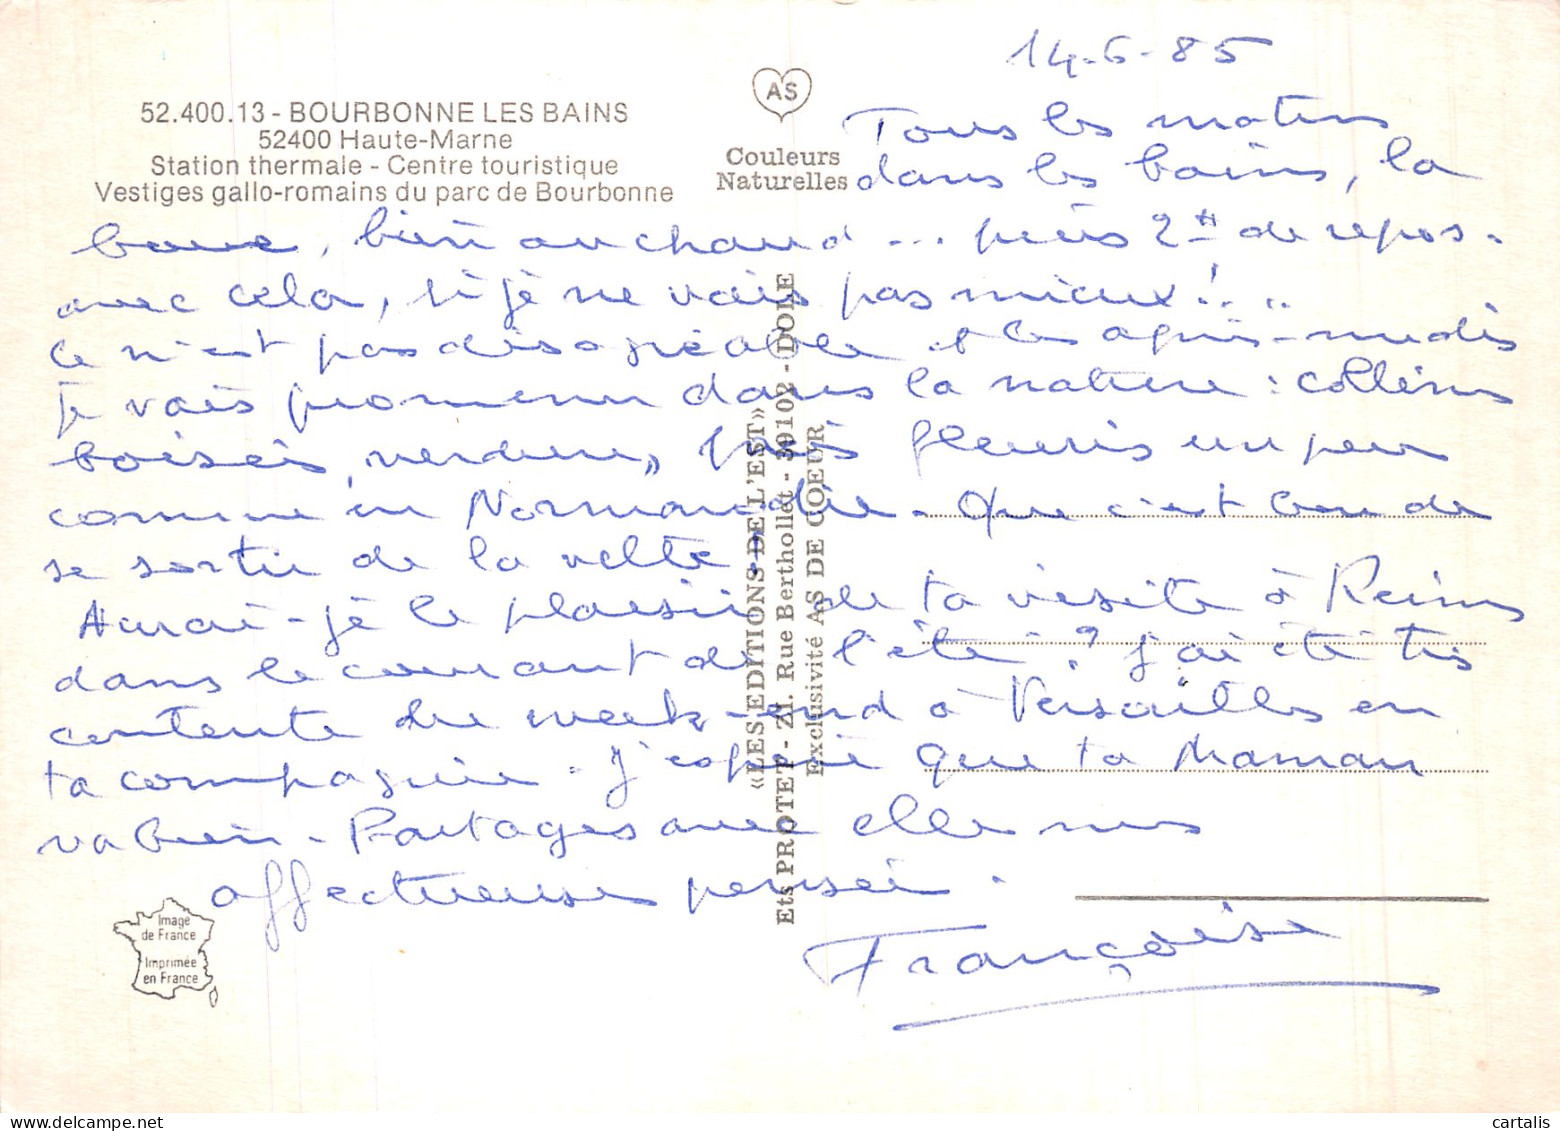 52.400.13 - BOURBONNE LES BAINS
52400 Haute-Marne
Station thermale - Centre touristique
Vestiges gallo-romains du parc de Bourbonne
AS
Couleurs
Naturelles
14-6-85
Tous les matins
dans les bains, la
boue, bien au chaud... puis 2H de repos.
avec cela, si je ne vais pas mieux!..
Ce n'est pas désagréable et les après-midis
je vais promener dans la nature : collines
boisées, verdure, prés fleuris un peu
comme en Normandie. Que c'est bon de
se sortir de la ville.
Aurai-je le plaisir de ta visite à Reims
dans le courant de l'été ? J'ai été très
contente du week-end à Versailles en
ta compagnie. J'espère que ta Maman
va bien. Partages avec elle mes
affectueuses pensées.
Françoise
«LES EDITIONS DE L'EST»
Ets PROTET - ZI. Rue Berthollet - 39102 - DOLE
Exclusivité AS DE COEUR
Image
de France
Imprimée
en France
cartalis